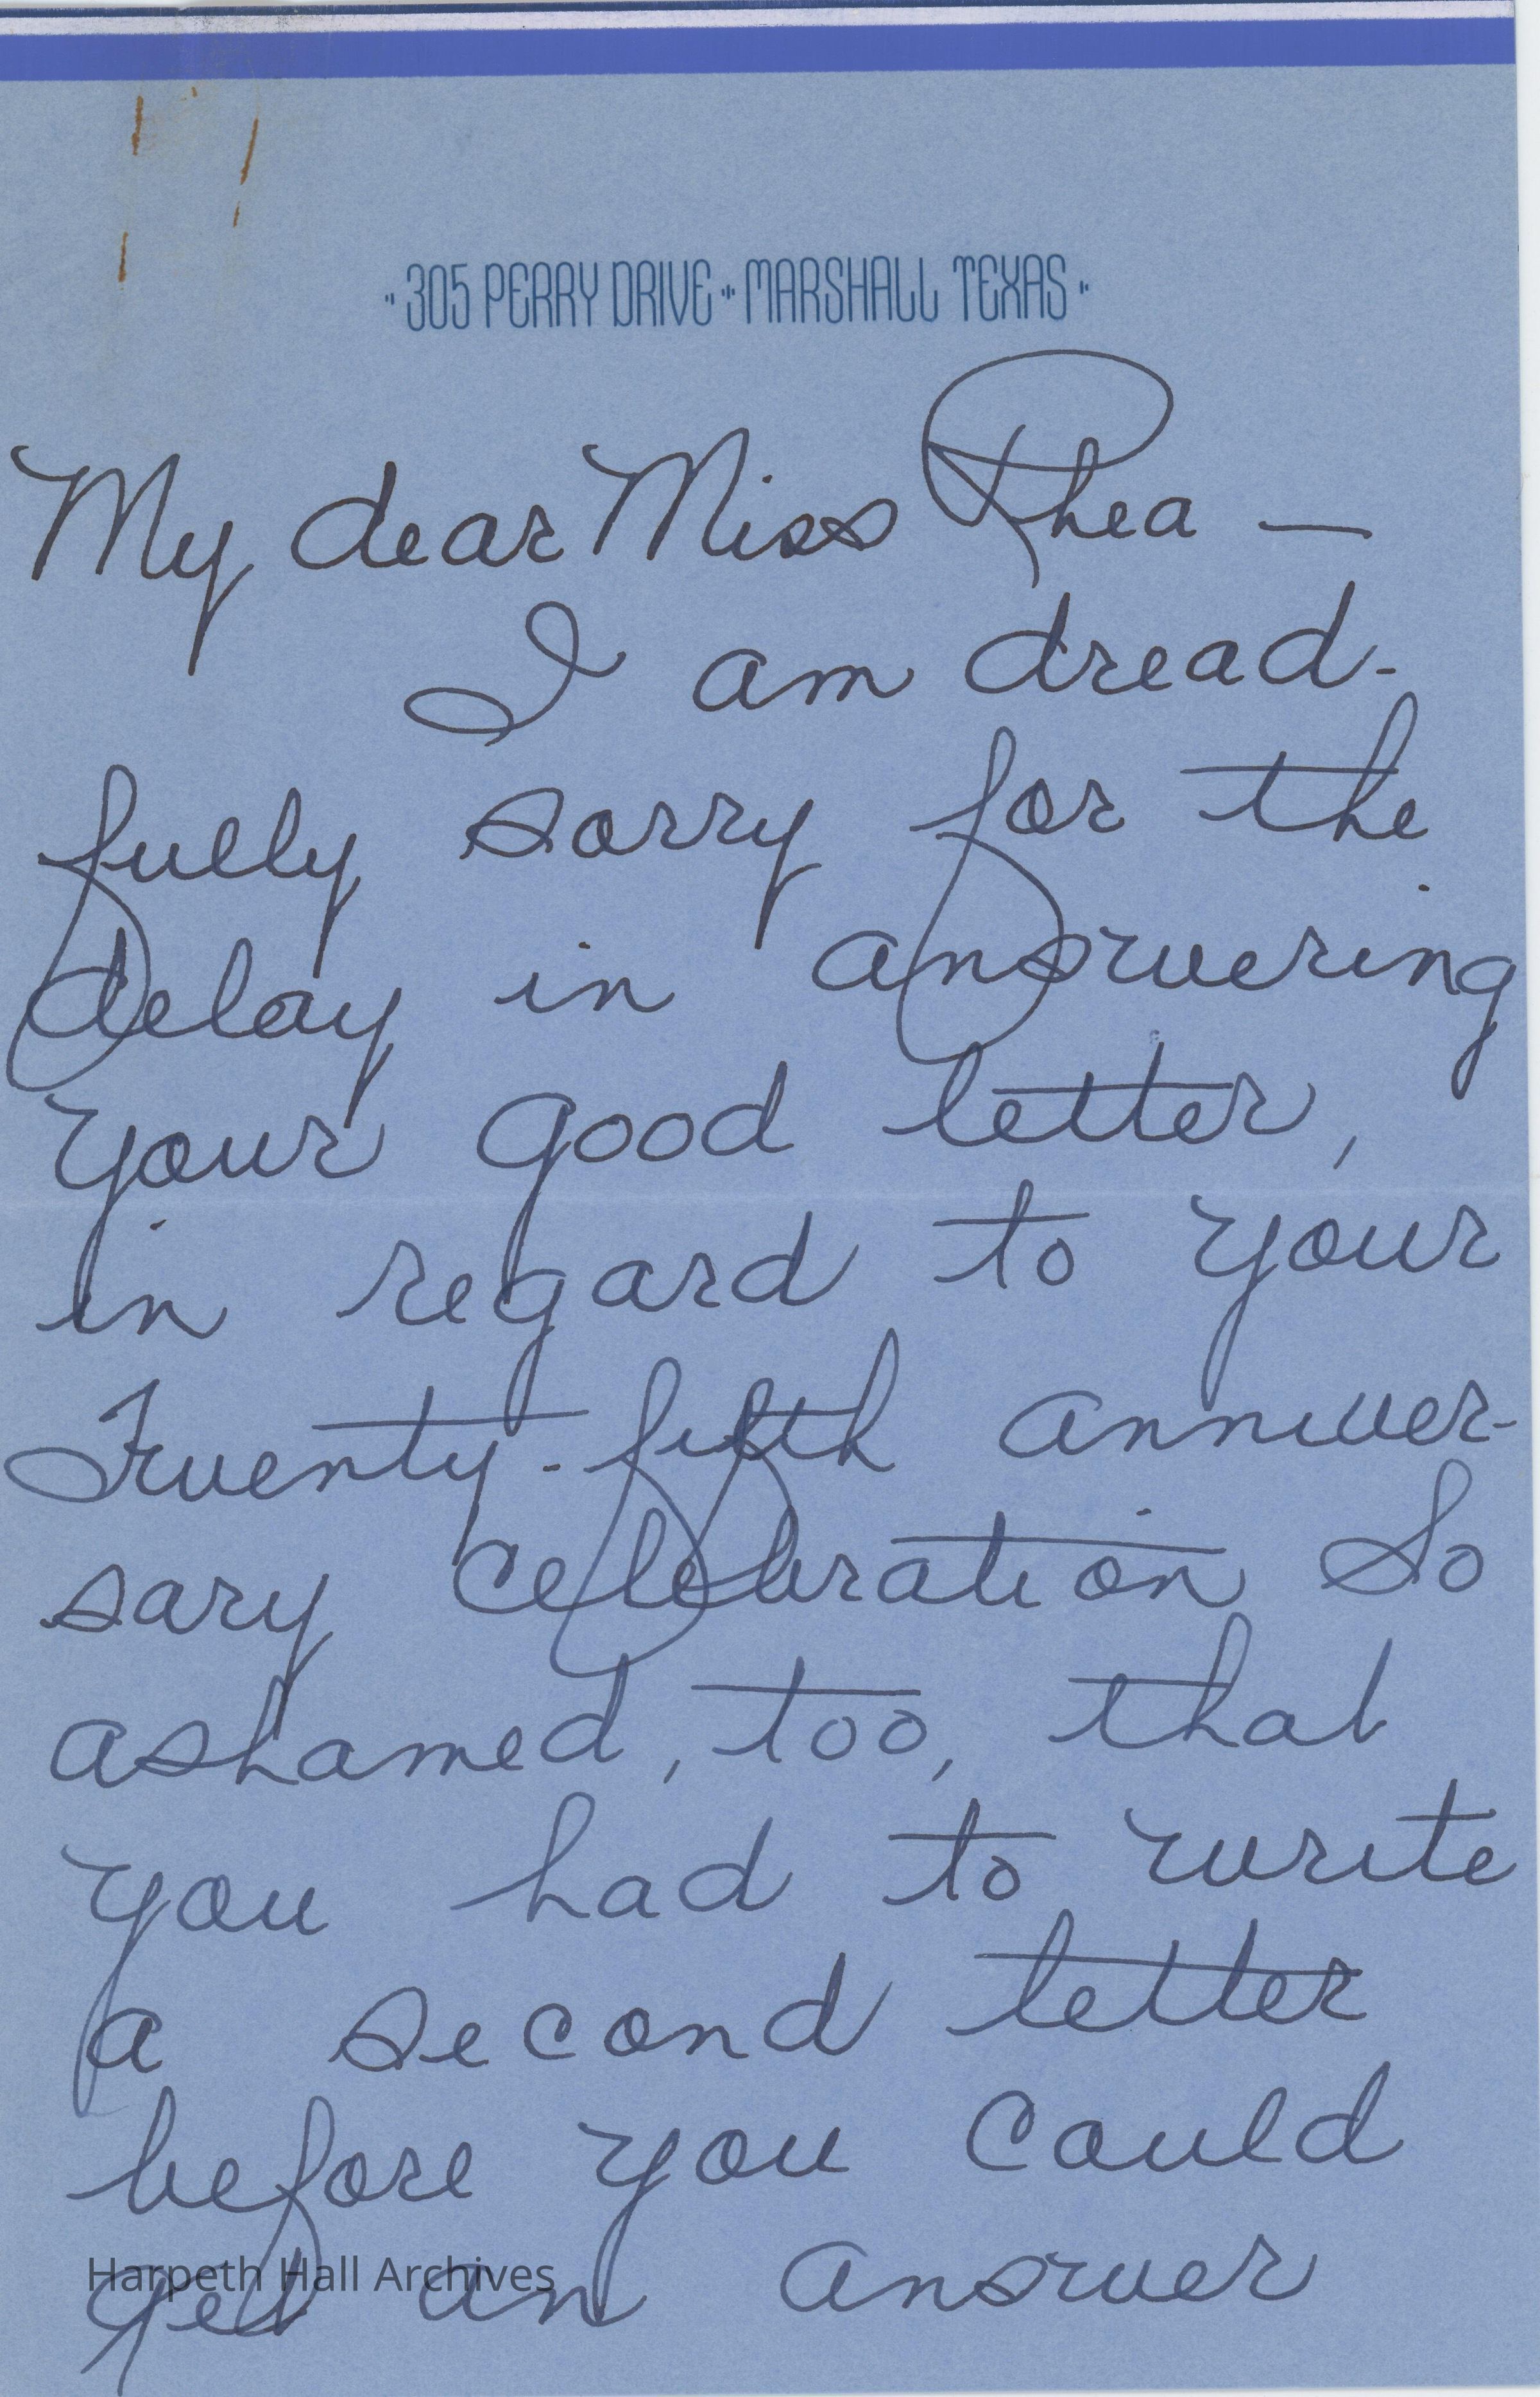 305 PERRY DRIVE MARSHALL TEXAS
My dear Miss Rhea —
I am dread-
fully sorry for the
delay in answering
your good letter,
in regard to your
Twenty-fifth anniver-
sary celebration So
ashamed, too, that
you had to write
a second letter
before you could
get an answer
Harpeth Hall Archives